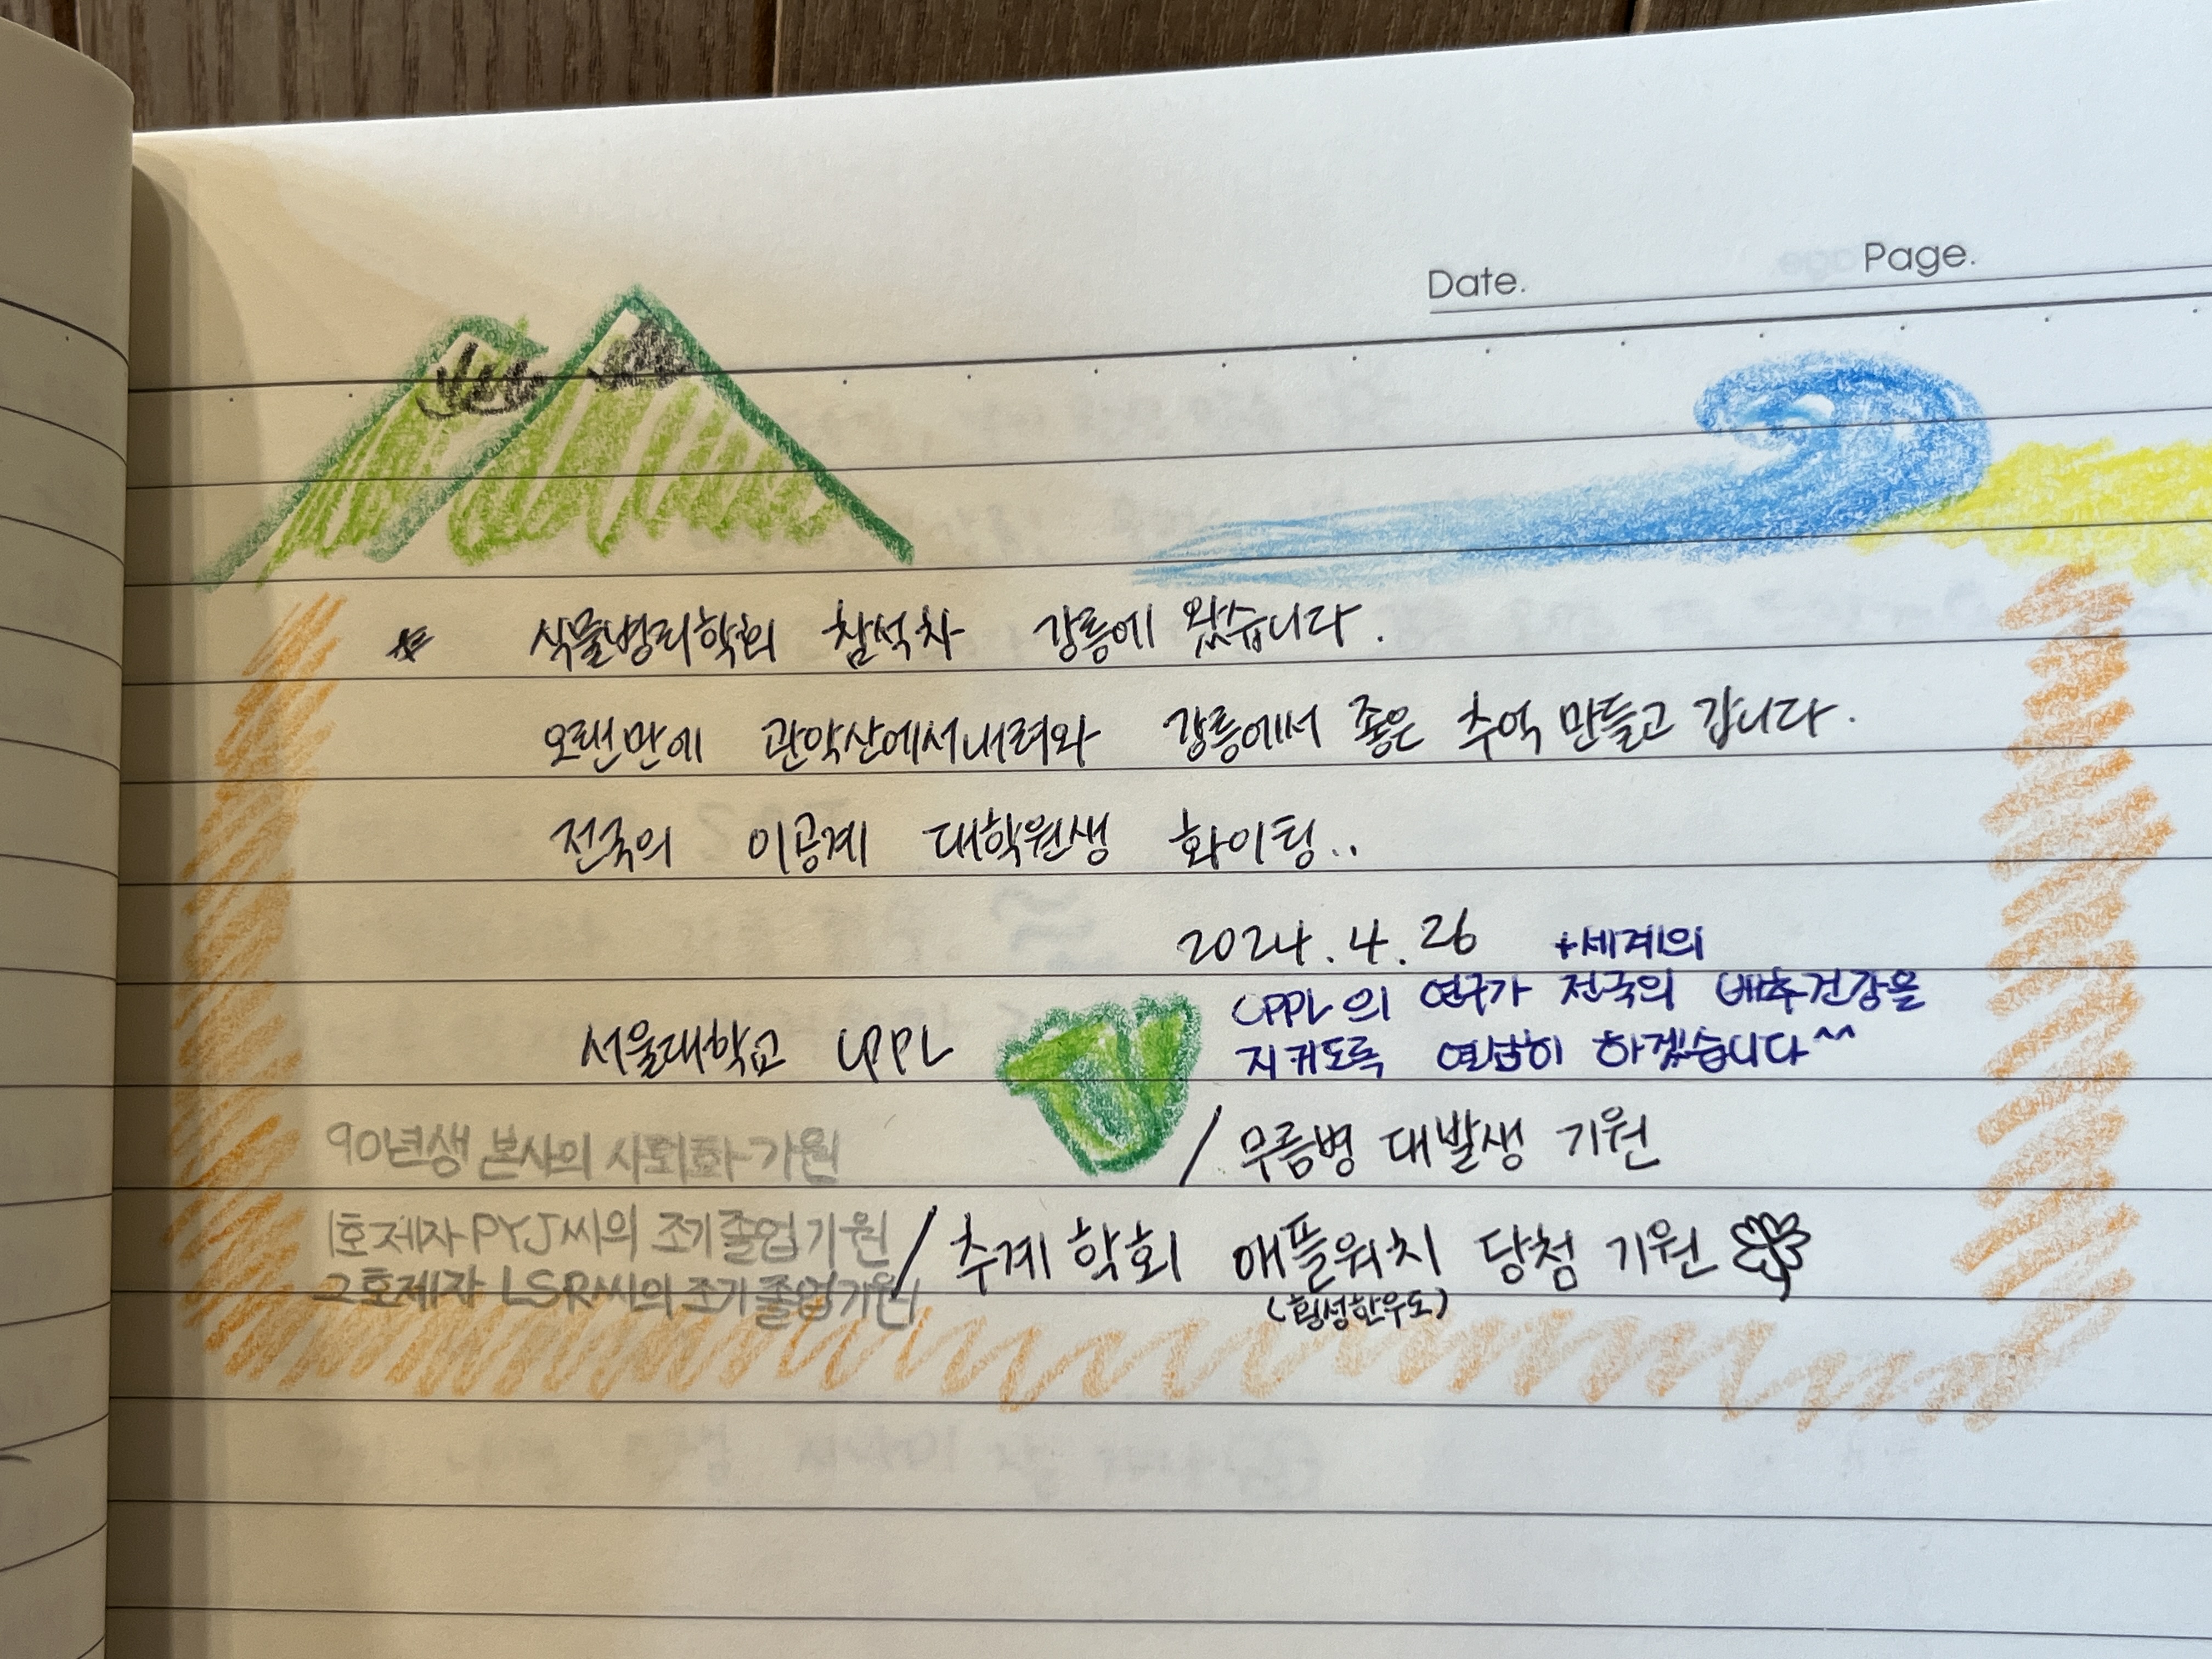 Date. Page.
* 식물병리학회 참석차 강릉에 왔습니다.
오랜만에 관악산에서내려와 강릉에서 좋은 추억 만들고 갑니다.
전국의 이공계 대학원생 화이팅..
2024.4.26 +세계의
CPPL의 연구가 전국의 배추건강을
지키도록 열심히 하겠습니다^^
서울대학교 CPPL
90년생 본사의 사회화 기원 / 무름병 대발생 기원
1호제자 PYJ씨의 조기졸업기원 / 추계학회 애플워치 당첨 기원
2호제자 LSR씨의 조기졸업기원 (횡성한우도)